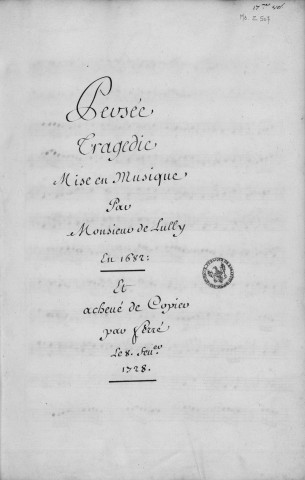 Persée
Tragedie
Mise en Musique
Par
Monsieur de Lully
En 1682:
Et
acheué de Copier
par ferré
Le 8. feu.er
1728.